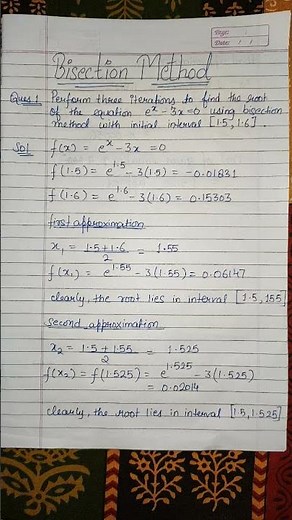 Page:
Date: / /
Bisection Method
Ques 1 Perform three iterations to find the root
of the equation eˣ - 3x = 0 using bisection
method with initial interval [1.5, 1.6]
Sol f(x) = eˣ - 3x = 0
f(1.5) = e^1.5 - 3(1.5) = -0.01831
f(1.6) = e^1.6 - 3(1.6) = 0.15303
first approximation
x₁ = 1.5+1.6/2 = 1.55
f(x₁) = e^1.55 - 3(1.55) = 0.06147
clearly, the root lies in interval [1.5, 155]
second approximation
x₂ = 1.5+1.55/2 = 1.525
f(x₂) = f(1.525) = e^1.525 - 3(1.525)
= 0.02014
clearly, the root lies in interval [1.5, 1.525]